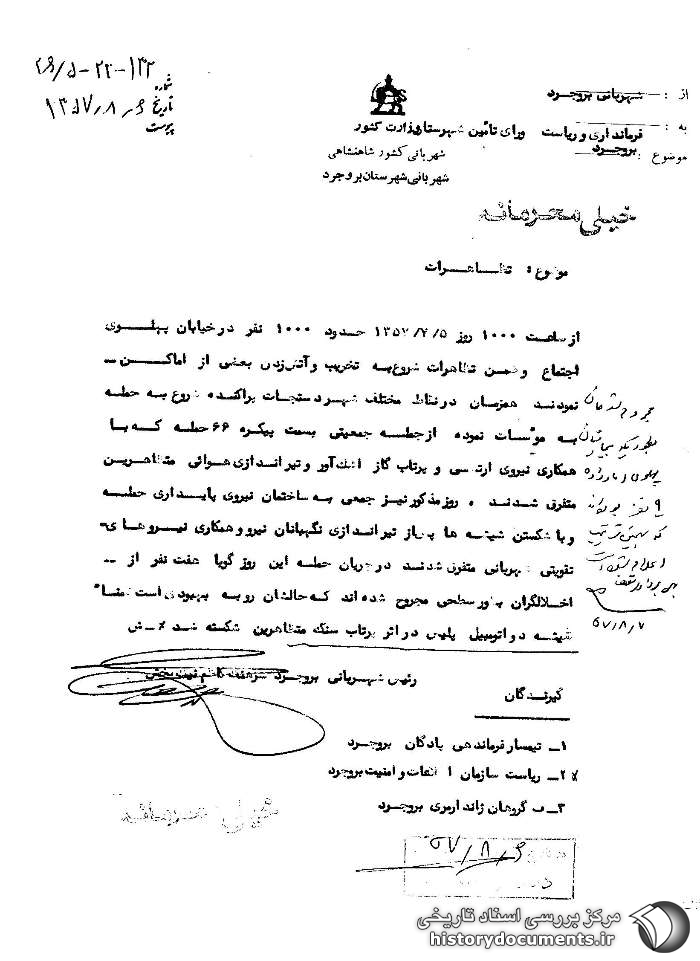 ۲۶/۵-۲۲-۱۴۲
شماره
تاریخ ۱۳۵۷/۸/۶
پیوست
از : شهربانی بروجرد
به : فرمانداری و ریاست ورای تأمین شهرستان بروجرد
موضوع :
وزارت کشور
شهربانی کشور شاهنشاهی
شهربانی شهرستان بروجرد
خیلی محرمانه
موضوع : تظاهرات
از ساعت ۱۰۰۰ روز ۱۳۵۷/۷/۵ حدود ۱۰۰۰ نفر در خیابان پهلوی
اجتماع و ضمن تظاهرات شروع به تخریب و آتش زدن بعضی از اماکن ــ
نمودند همزمان در نقاط مختلف شهر دستجات پراکنده شروع به حمله
به مؤسسات نموده از جمله جمعیتی بسمت پیکره ۶۶ حمله که با
همکاری نیروی ارتشی و پرتاب گاز اشک‌آور و تیراندازی هوائی متظاهرین
متفرق شدند . روز مذکور نیز جمعی به ساختمان نیروی پایداری حمله
و با شکستن شیشه ها پس از تیراندازی نگهبانان نیرو و همکاری نیروهای
تقویتی شهربانی متفرق شدند در جریان حمله این روز گویا هفت نفر از ــ
اخلالگران بطور سطحی مجروح شده اند که حالشان رو به بهبودی است ضمناً
شیشه دو اتومبیل پلیس در اثر پرتاب سنگ متظاهرین شکسته شد ٪ ش
مجروح شدگان
پهلوی
۹ نفر
که
اعلام
۵۷/۸/۷
رئیس شهربانی بروجرد سرهنگ کاظم
گیرندگان
۱ــ تیمسار فرماندهی پادگان بروجرد
۲ــ ریاست سازمان اطلاعات و امنیت بروجرد
۳ــ گروهان ژاندارمری بروجرد
خیلی محرمانه
۵۷/۸/۶
مرکز بررسی اسناد تاریخی
historydocuments.ir